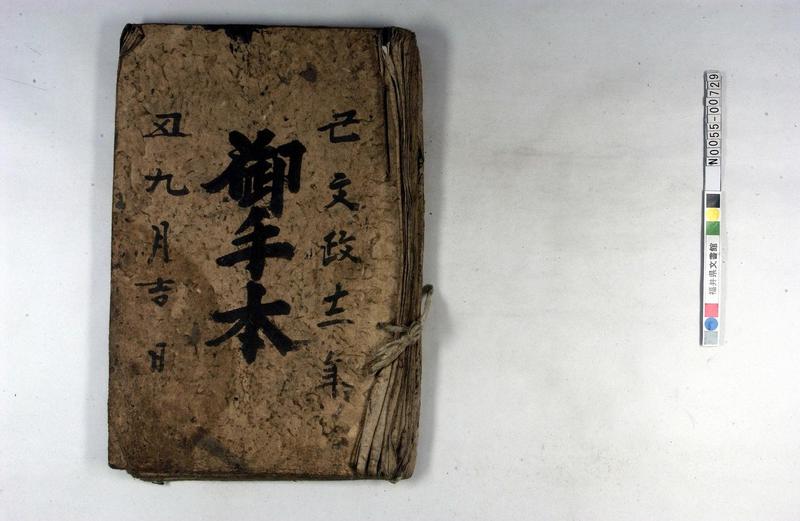 己文政十二年
御手本
丑九月吉日
N0055-00729
福井県文書館